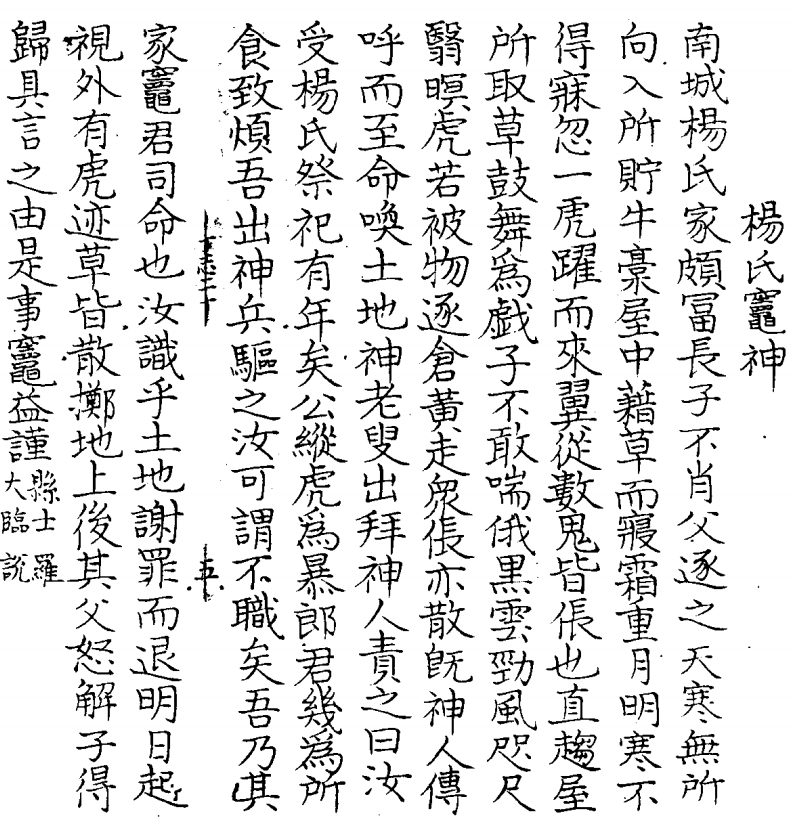 楊氏竈神
南城楊氏家頗冨長子不肖父逐之天寒無所
向入所貯牛藁屋中藉草而寢霜重月明寒不
得寐忽一虎躍而來翼從數鬼皆倀也直趨屋
所取草鼓舞爲戯子不敢喘俄黒雲勁風咫尺
翳暝虎若被物逐倉黃走衆倀亦散旣神人傳
呼而至命喚土地神老叟出拜神人責之曰汝
受楊氏祭祀有年矣公縱虎爲暴郎君幾爲所
食致煩吾出神兵驅之汝可謂不職矣吾乃其
家竈君司命也汝識乎土地謝罪而退明日起
視外有虎迹草皆散擲地上後其父怒解子得
歸具言之由是事竈益謹縣士羅大臨說
五